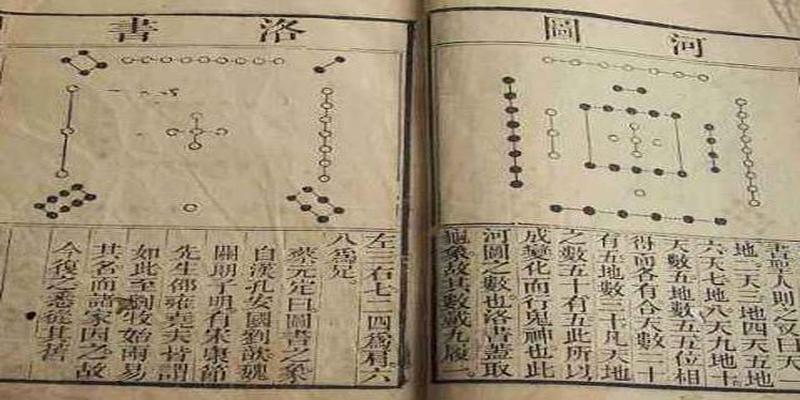 河圖
書聖人則之又曰天一
地二天三地四天五地
六天七地八天九地十
天數五地數五五位相
得而各有合天數二十
有五地數三十凡天地
之數五十有五此所以
成變化而行鬼神也此
河圖之數也洛書蓋取
龜象故其數戴九履一
洛書
左三右七二四爲肩六
八爲足
蔡元定曰圖書之象
自漢孔安國劉歆魏
關朗子明有宋康節
先生邵雍堯夫皆謂
如此至劉牧始兩易
其名而諸家因之故
今復之悉從其舊